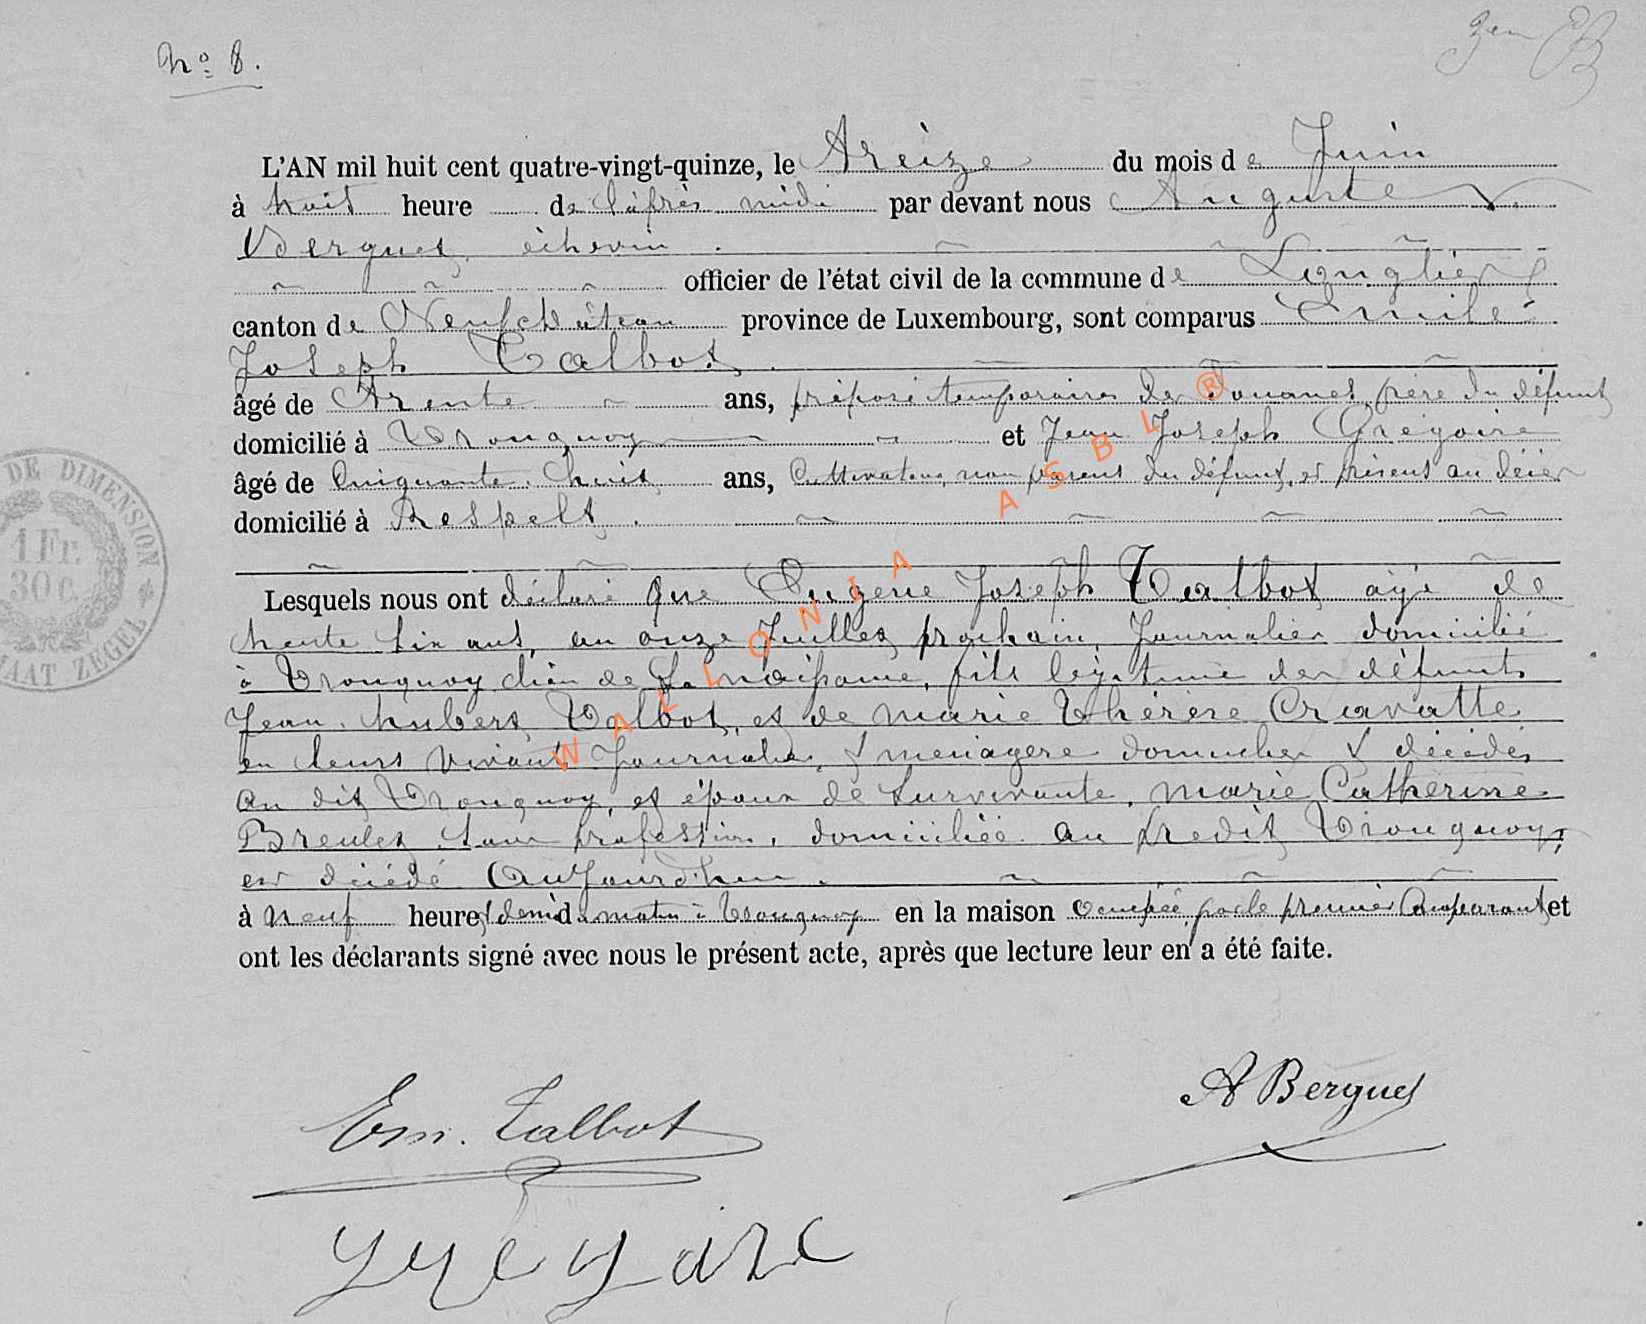 N° 8.
L'AN mil huit cent quatre-vingt-quinze, le treize du mois de Juin
à huit heure de l'après midi par devant nous Auguste
Bergues, échevin.
officier de l'état civil de la commune de Longlier
canton de Neufchâteau province de Luxembourg, sont comparus Emile
Joseph Talbot,
âgé de trente ans, préposé temporaire des Douanes, frère du défunt
domicilié à Tronquoy et Jean Joseph Grégoire
âgé de Cinquante huit ans, Cultivateur, non parent du défunt, et présent au décès
domicilié à Respelt.
Lesquels nous ont déclaré que Eugène Joseph Talbot agé de
trente six ans, au onze Juillet prochain, Journalier domicilié
à Tronquoy lieu de sa naissance, fils légitime des défunts
Jean hubert Talbot, et de marie Thérèse Cravatte
en leurs vivant Journalier, & menagère domiciliés & décédés
au dit Tronquoy, et époux de survivante, marie Catherine
Breulet sans profession, domiciliée au predit Tronquoy,
est décédé Aujourd'hui.
à neuf heures & demi du matin à Tronquoy en la maison occupée par le premier Comparant, et
ont les déclarants signé avec nous le présent acte, après que lecture leur en a été faite.
DE DIMENSION
1 Fr.
30 c.
ZEGEL
WALLONIA ASBL ®
Em. Talbot
A Bergues